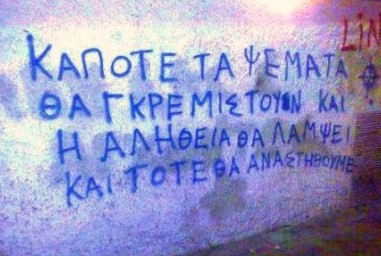 LiN
ΚΑΠΟΤΕ ΤΑ ΨΕΜΑΤΑ
ΘΑ ΓΚΡΕΜΙΣΤΟΥΝ ΚΑΙ
Η ΑΛΗΘΕΙΑ ΘΑ ΛΑΜΨΕΙ
ΚΑΙ ΤΟΤΕ ΘΑ ΑΝΑΣΤΗΘΟΥΜΕ